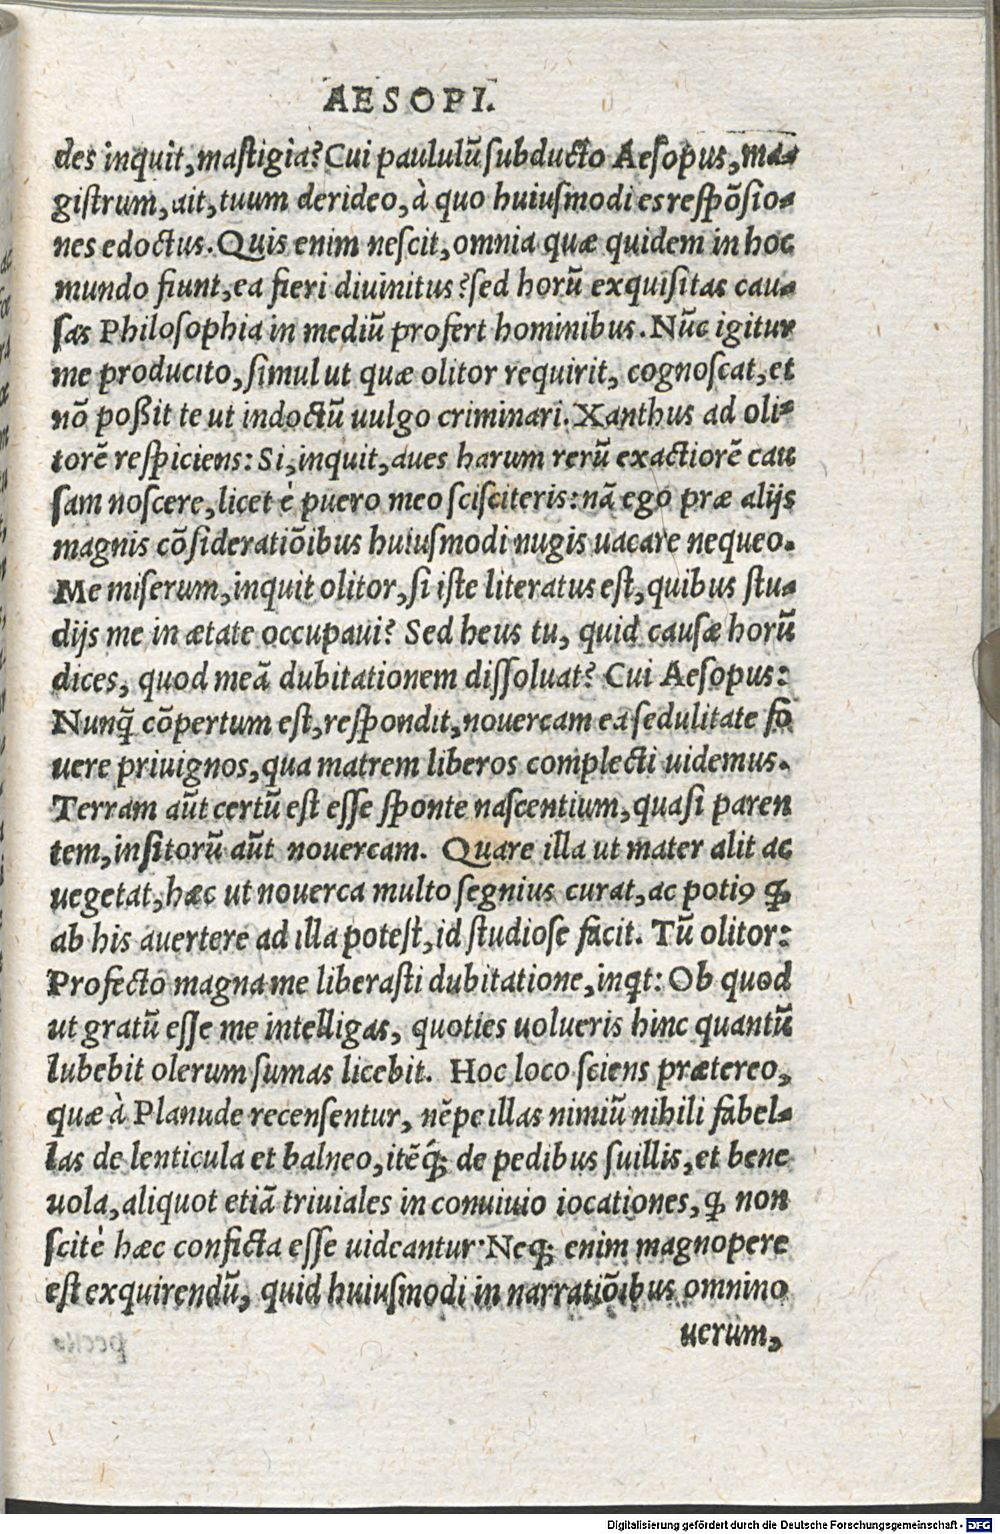 AESOPI.
des inquit, maſtigia? Cui paululū ſubducto Aeſopus, ma-
giſtrum, ait, tuum derideo, à quo huiuſmodi es reſpōſio-
nes edoctus. Quis enim neſcit, omnia quæ quidem in hoc
mundo fiunt, ea fieri diuinitus? ſed horū exquiſitas cau-
ſas Philoſophia in mediū profert hominibus. Nūc igitur
me producito, ſimul ut quæ olitor requirit, cognoſcat, et
nō poßit te ut indoctū uulgo criminari. Xanthus ad oli-
torē reſpiciens: Si, inquit, aues harum rerū exactiorē cau
ſam noſcere, licet è puero meo ſciſciteris: nā ego præ alijs
magnis cōſideratiōibus huiuſmodi nugis uacare nequeo.
Me miſerum, inquit olitor, ſi iſte literatus eſt, quibus ſtu-
dijs me in ætate occupaui? Sed heus tu, quid cauſæ horū
dices, quod meā dubitationem diſſoluat? Cui Aeſopus:
Nunq̄ cōpertum eſt, reſpondit, nouercam ea ſedulitate fo
uere priuignos, qua matrem liberos complecti uidemus.
Terram aūt certū eſt eſſe ſponte naſcentium, quaſi paren
tem, inſitorū aūt nouercam. Quare illa ut mater alit ac
uegetat, hæc ut nouerca multo ſegnius curat, ac potiꝰ ꝗ̃
ab his auertere ad illa poteſt, id ſtudioſe facit. Tū olitor:
Profecto magna me liberaſti dubitatione, inqt: Ob quod
ut gratū eſſe me intelligas, quoties uolueris hinc quantū
lubebit olerum ſumas licebit. Hoc loco ſciens prætereo,
quæ à Planude recenſentur, nēpe illas nimiū nihili fabel-
las de lenticula et balneo, itēq́; de pedibus ſuillis, et bene
uola, aliquot etiā triuiales in conuiuio iocationes, ꝗ non
ſcitè hæc conficta eſſe uideantur. Neq; enim magnopere
eſt exquirendū, quid huiuſmodi in narratiōibus omnino
uerum,
Digitalisierung gefördert durch die Deutsche Forschungsgemeinschaft - DFG